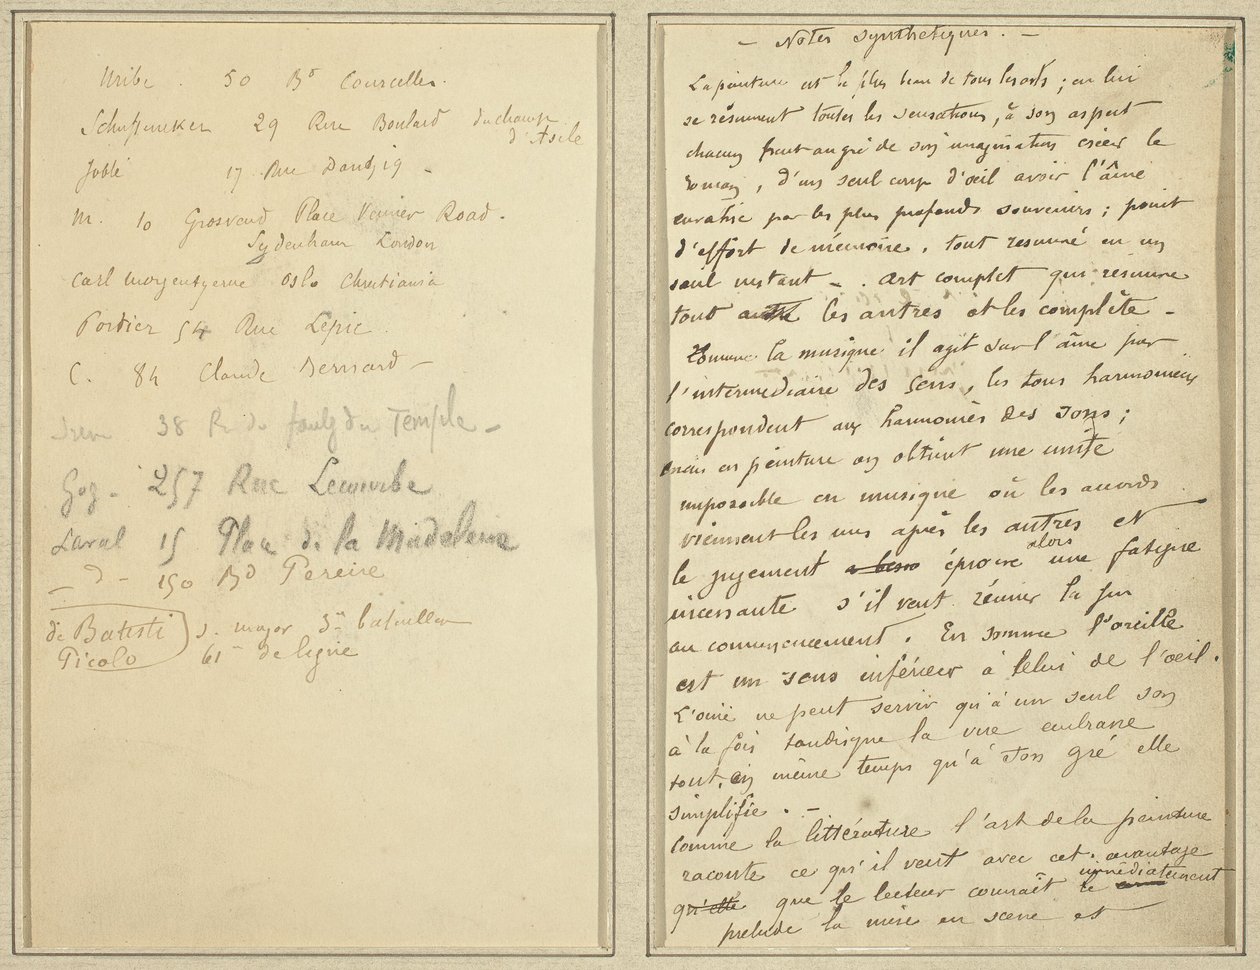 Uribe 50 Bd Courcelles.
Schuffeneker 29 Rue Boulard du champ
d'Asile
Jobbé 17 Rue Dantzig -
M. 10 Grosvend Place Venier Road.
Sydenham London
Carl morgenstjerne Oslo Christiania
Portier 54 Rue Lepic
C. 84 Claude Bernard -
38 R. du faubg du Temple -
257 Rue Lecourbe
Laval 15 Place de la Madeleine
— d — 150 Bd Pereire
de Batisti s. major 3me bataillon
Picolo 61me de ligne
— Notes synthétiques. —
La peinture est le plus beau de tous les arts ; en lui
se résument toutes les sensations, à son aspect
chacun peut au gré de son imagination créer le
roman, d'un seul coup d'oeil avoir l'âme
envahie par les plus profonds souvenirs ; point
d'effort de mémoire, tout resumé en un
seul instant _ . Art complet qui resume
tout autre les autres et les complète -
Comme la musique il agit sur l'âme par
l'intermediaire des sens, les tons harmonieux
correspondent aux harmonies des sons ;
mais en peinture on obtient une unité
impossible en musique où les accords
viennent les uns après les autres et
le jugement a besoin éprouve alors une fatigue
incessante s'il veut réunir la fin
au commencement. En somme l'oreille
est un sens inférieur à celui de l'oeil.
L'ouïe ne peut servir qu'à un seul son
à la fois tandisque la vue embrasse
tout, en même temps qu'à son gré elle
simplifie. -
Comme la littérature l'art de la peinture
raconte ce qu'il veut avec cet avantage
qu'elle que le lecteur connaît immédiatement le
prelude la mise en scene et